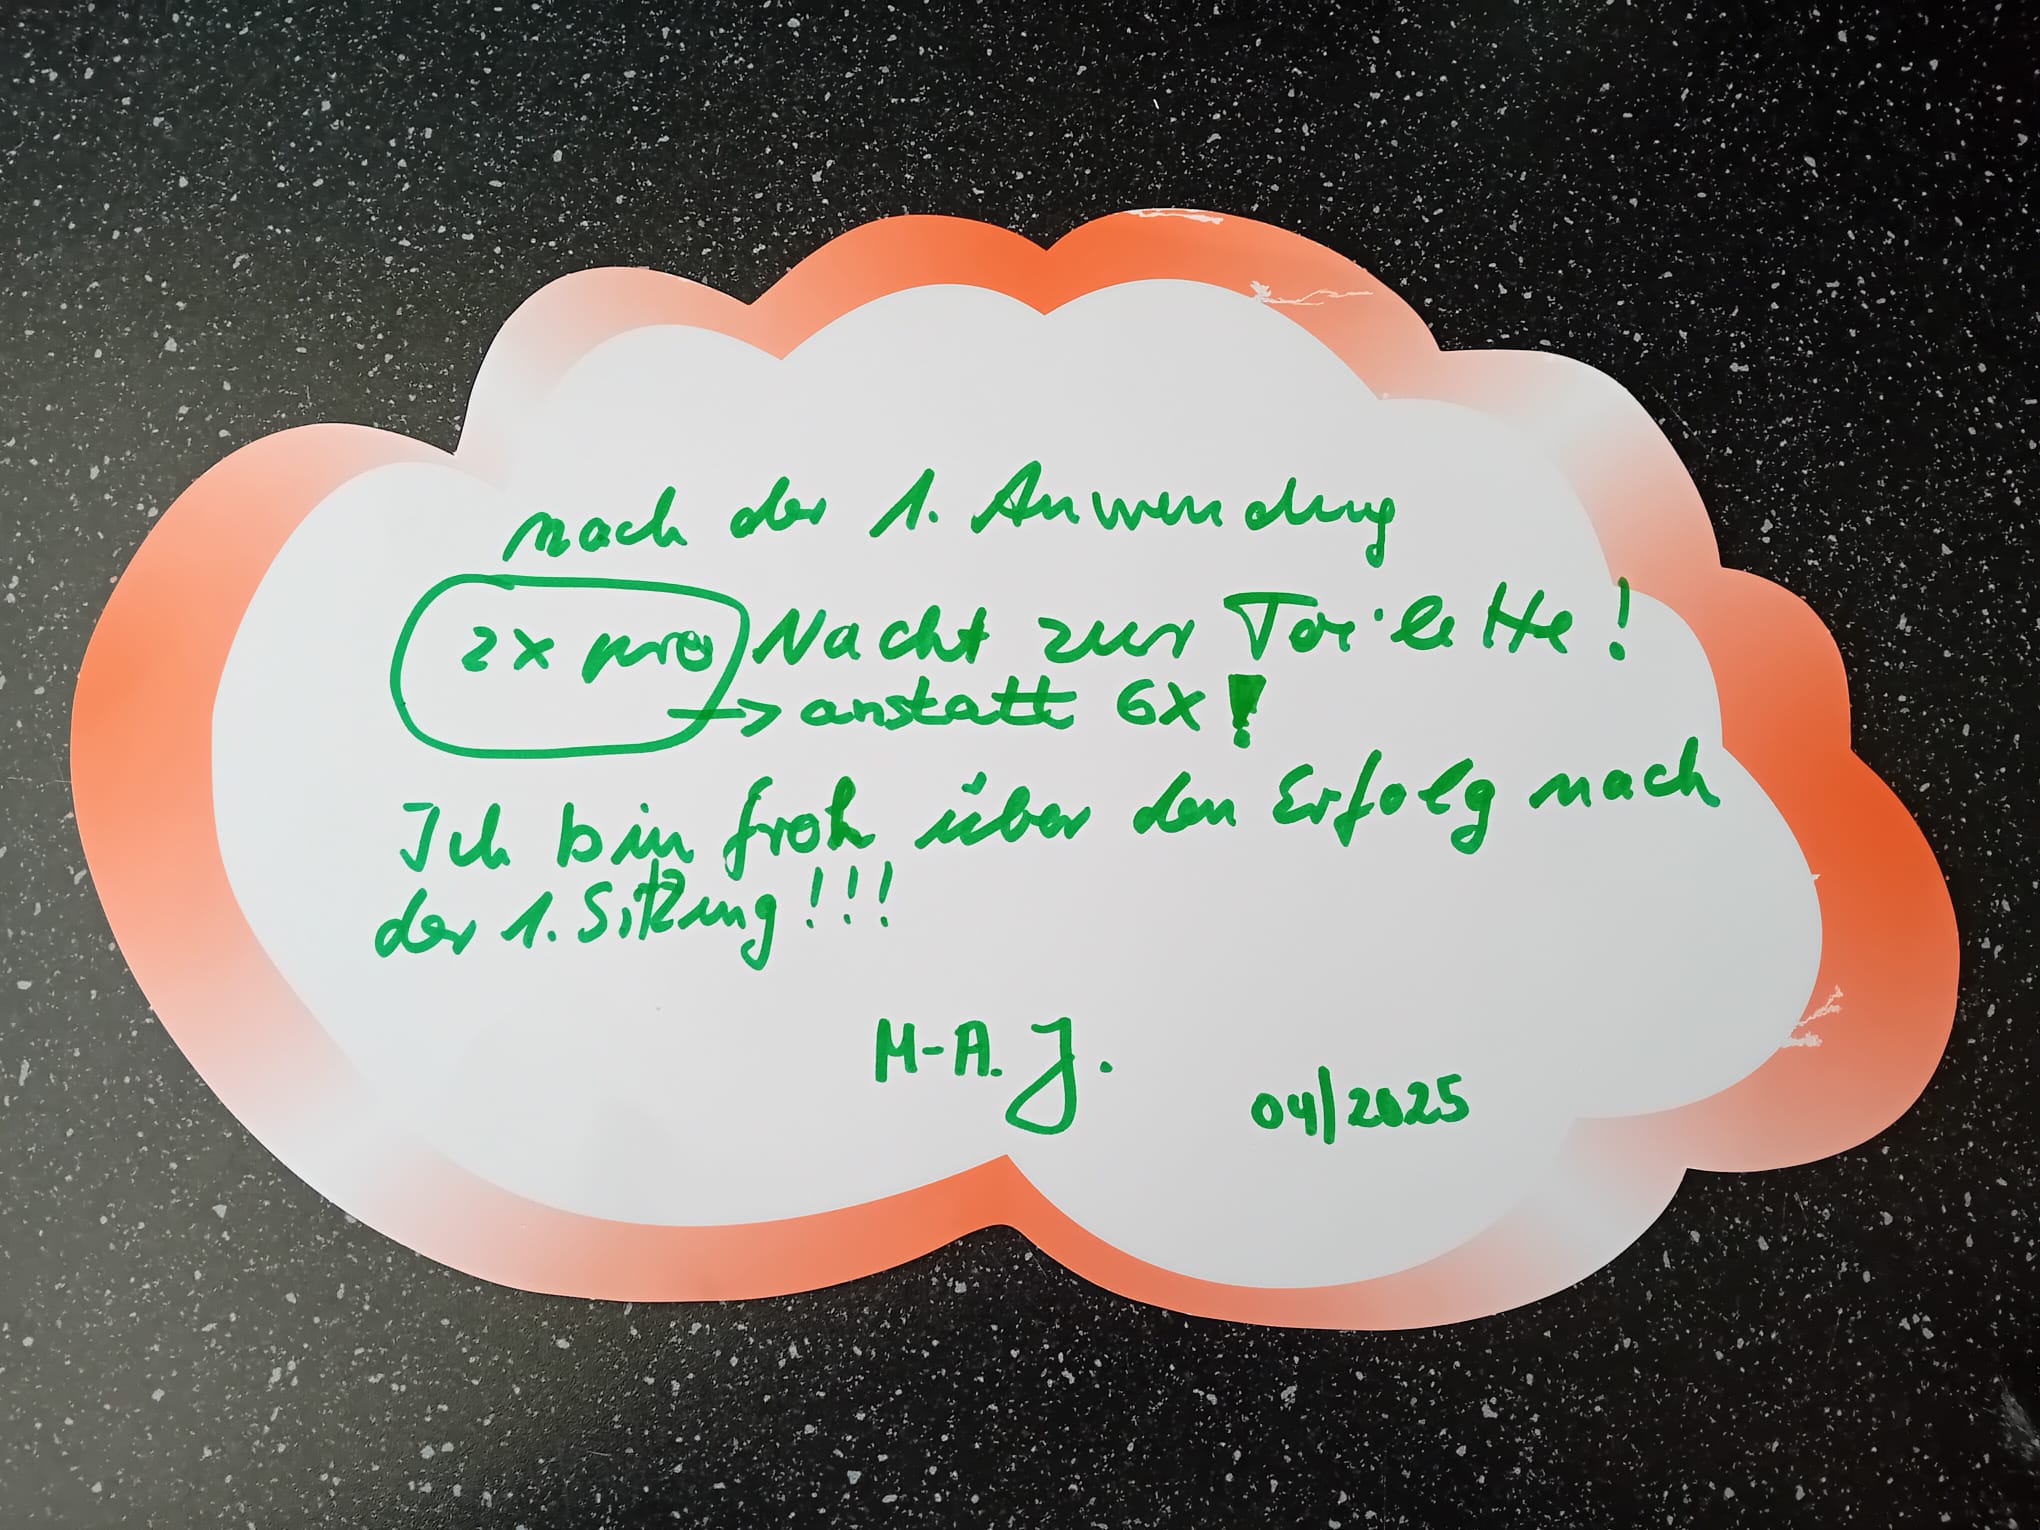 nach der 1. Anwendung
2x pro Nacht zur Toilette!
→ anstatt 6x!
Ich bin froh über den Erfolg nach
der 1. Sitzung!!!
M-A. J.
04/2025